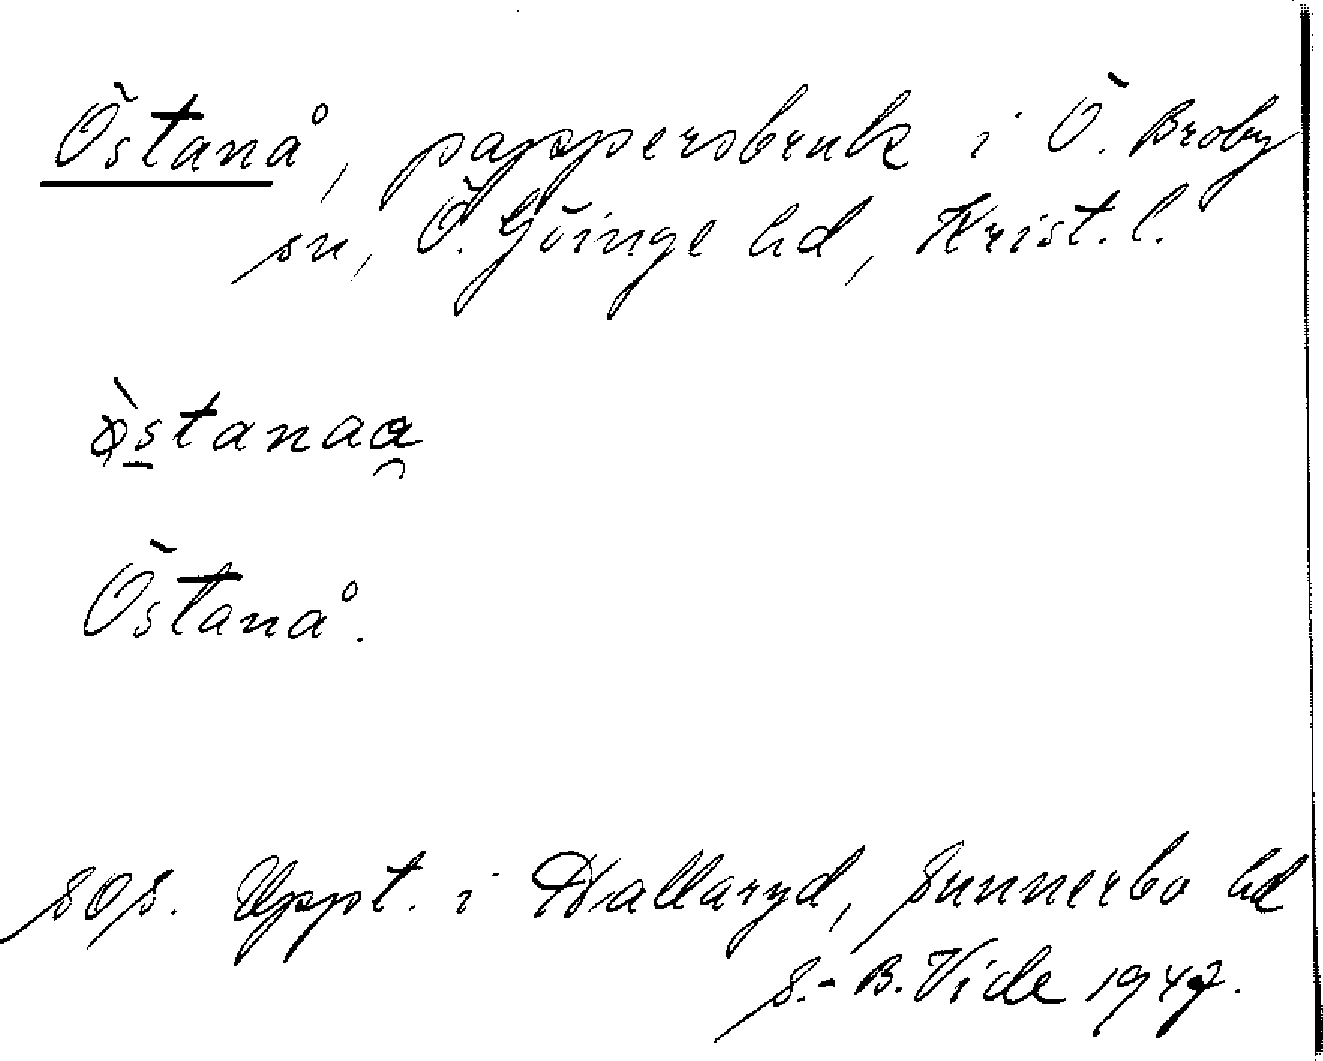 Östanå, pappersbruk i Ö. Broby
sn, Ö. Göinge hd, Krist. l.
ò̤stanaa̯
Östanå.
SOS. Uppt. i Hallaryd, Sunnerbo hd
S.-B. Vide 1947.